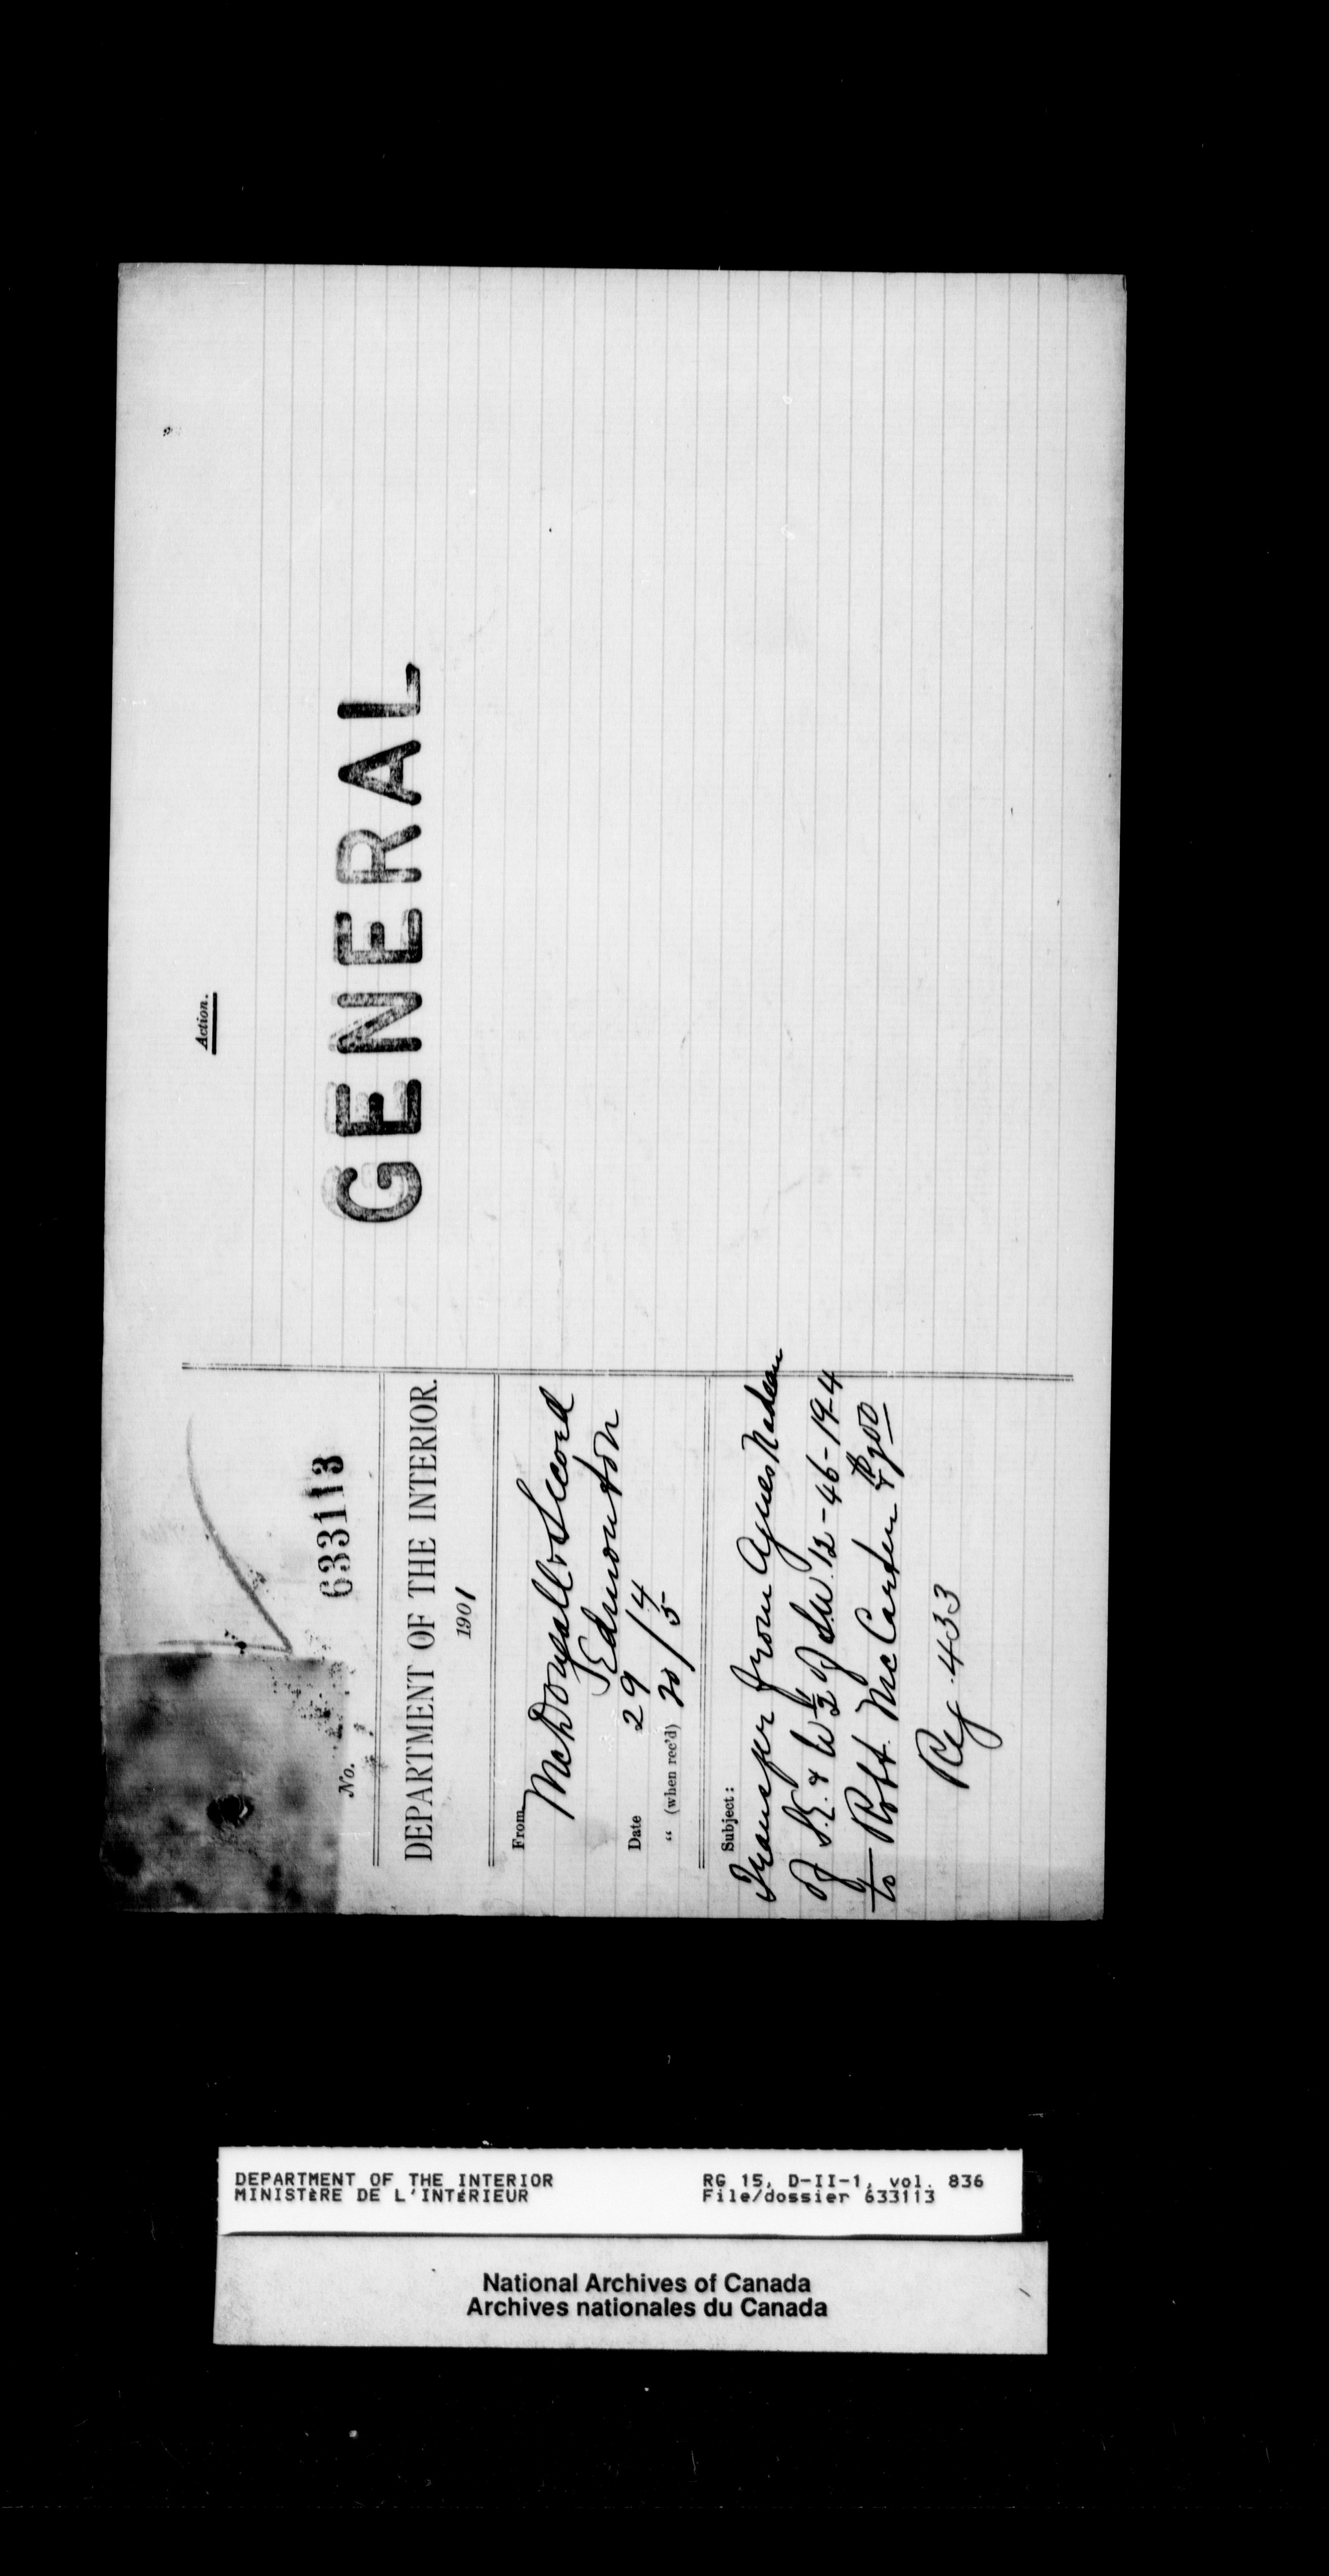 No. 633113
DEPARTMENT OF THE INTERIOR.
1901
From McDougall & Secord
Edmonton
Date 29/4
" (when rec'd) 20/5
Subject:
Transfer from Agnes Nadeau
of S.E. & W ½ of S.W. 12-46-19-4
to Robt. McCarten &
Reg. 433
Action.
GENERAL
DEPARTMENT OF THE INTERIOR
MINISTÈRE DE L'INTÉRIEUR
RG 15, D-II-1, vol. 836
File/dossier 633113
National Archives of Canada
Archives nationales du Canada